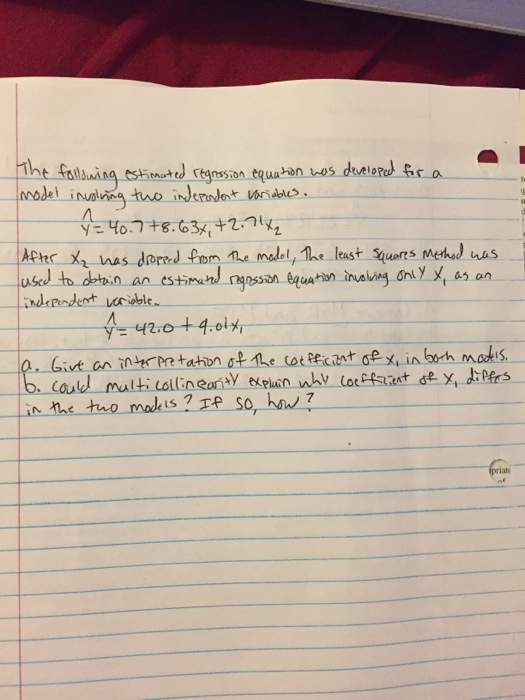 The following estimated regression equation was developed for a
model involving two independent variables.
ŷ = 40.7 + 8.63x₁ + 2.71x₂
After X₂ was droped from the model, The least squares method was
used to obtain an estimated regression equation involving only X₁ as an
independent variable.
ŷ = 42.0 + 9.01x₁
a. Give an interpretation of the coefficient of x₁ in both models.
b. could multicollinearity explain why coefficient of X₁ differs
in the two models? If so, how?
priate